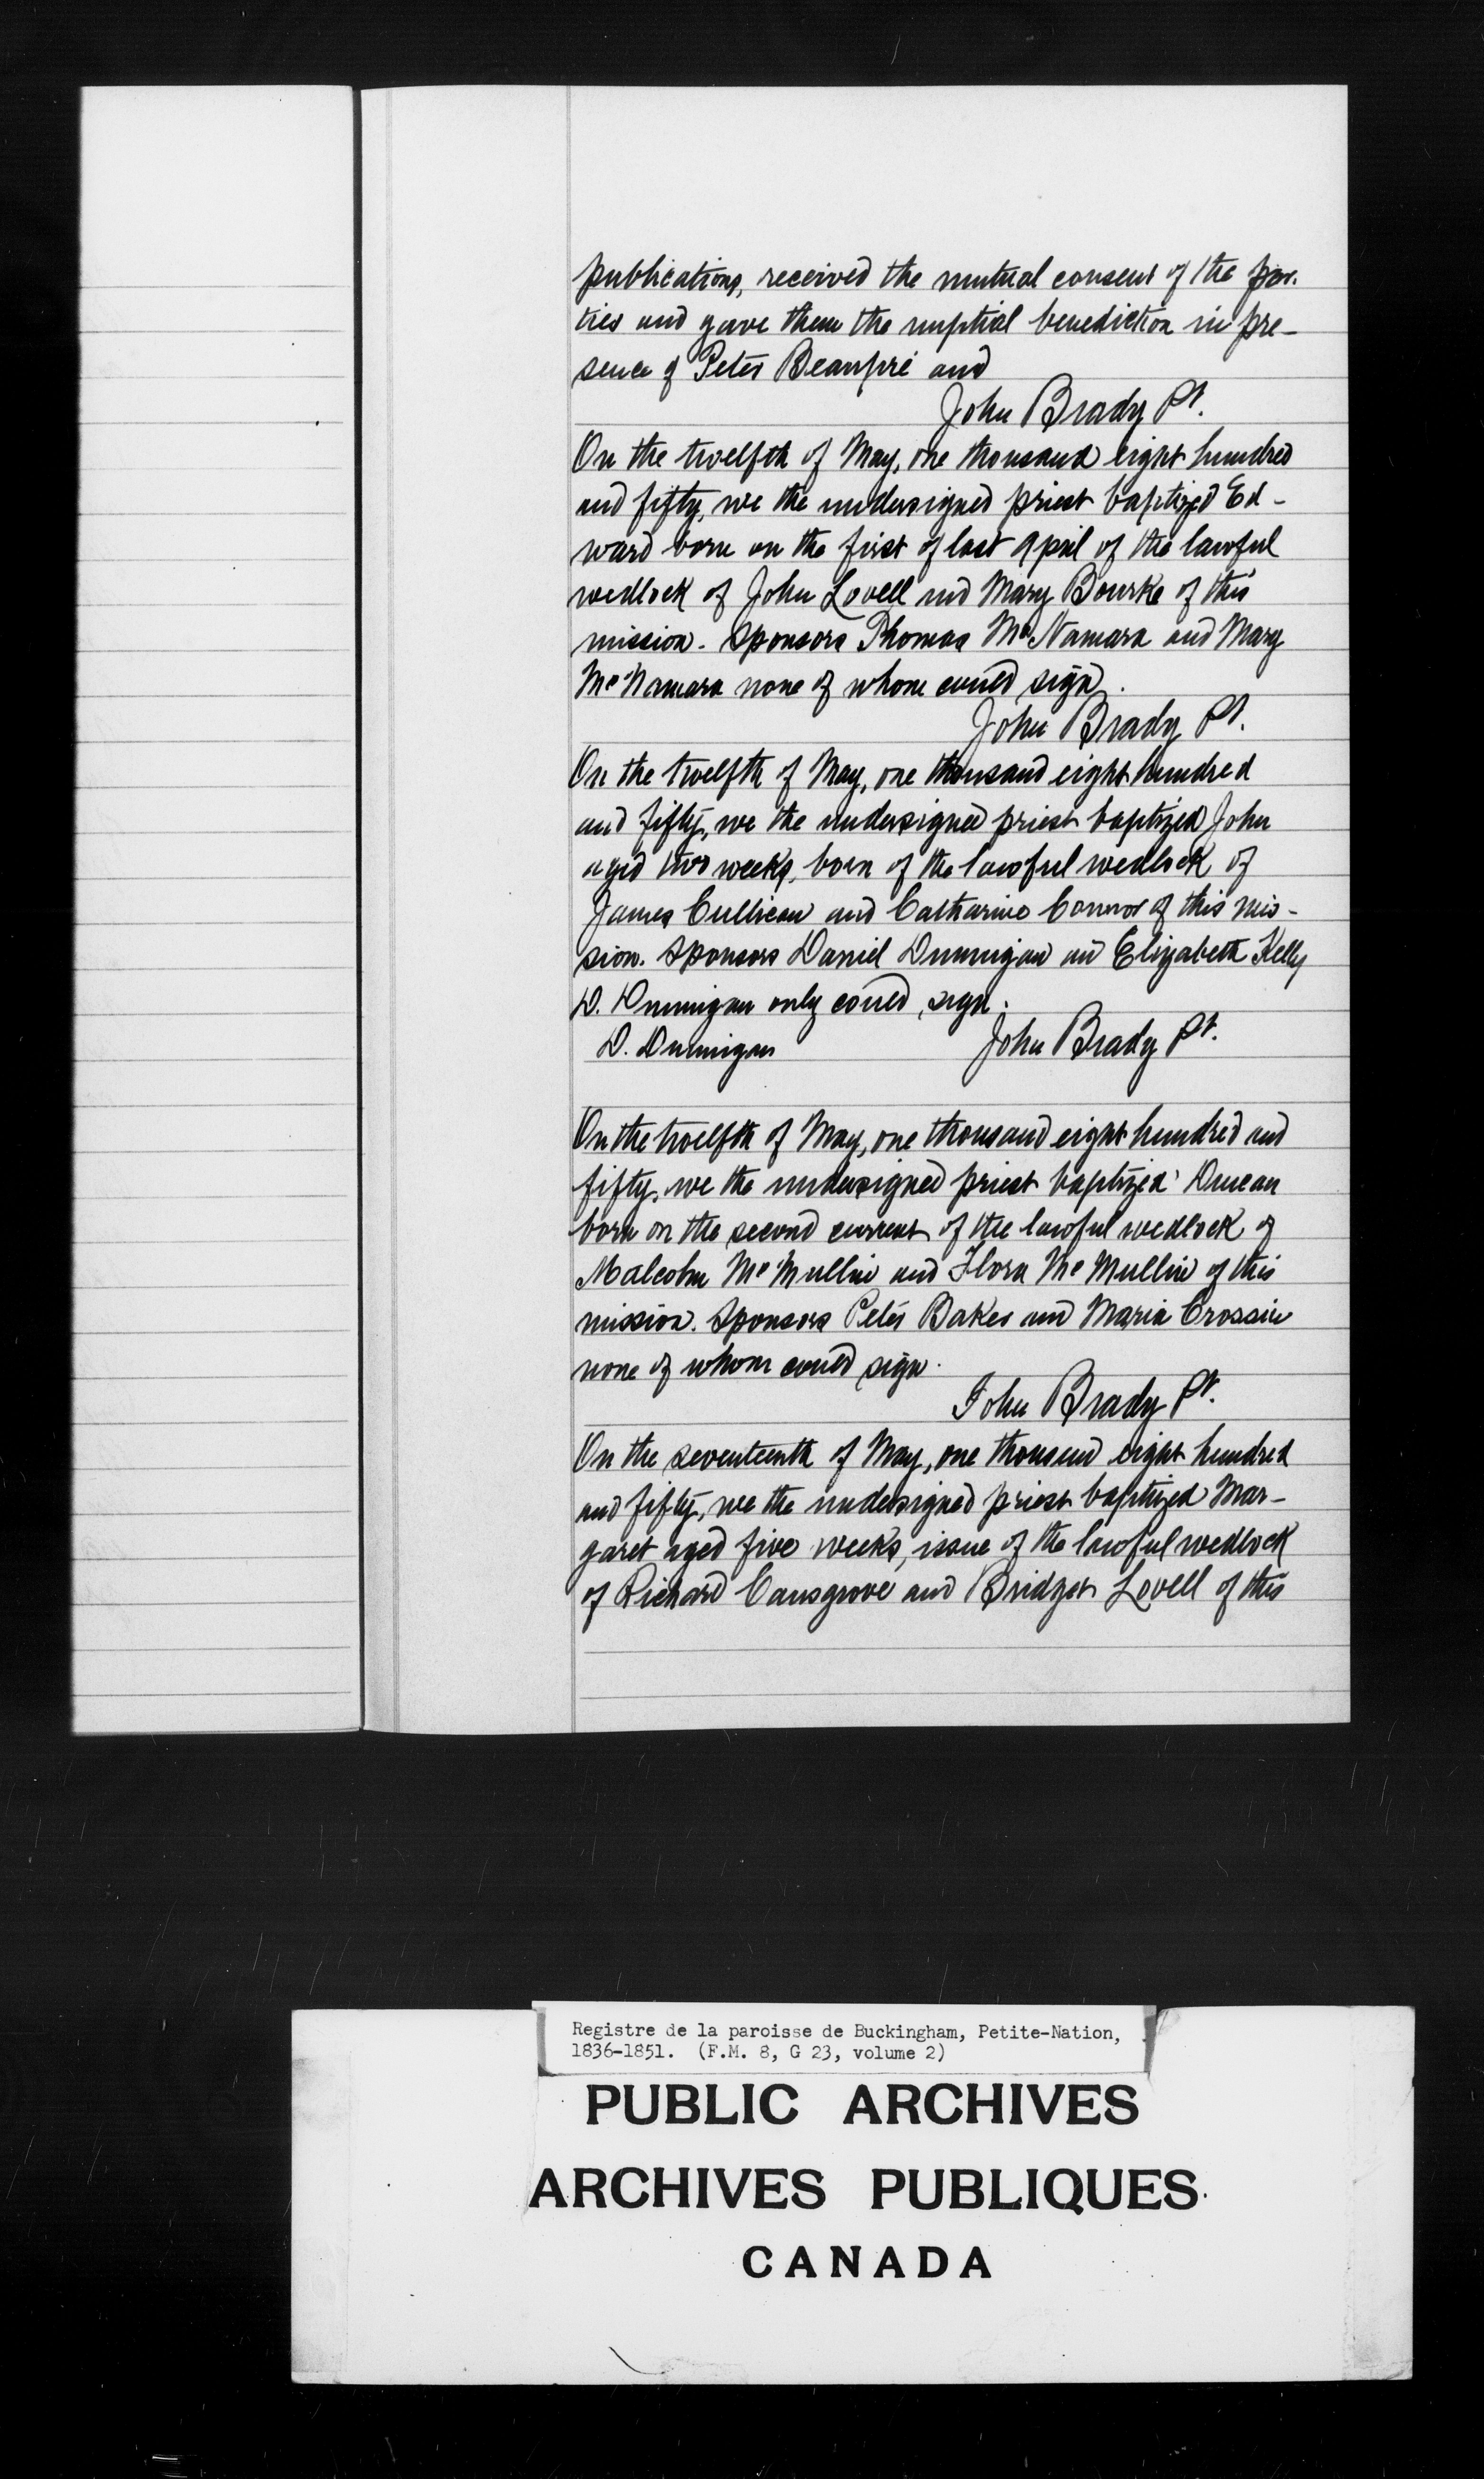 publications, received the mutual consent of the par-
ties and gave them the nuptial benediction in pre-
sence of Peter Beaupré and
John Brady Pt.
On the twelfth of May, one thousand eight hundred
and fifty, we the undersigned priest baptized Ed-
ward born on the first of last April of the lawful
wedlock of John Lovell and Mary Bourke of this
mission. Sponsors Thomas McNamara and Mary
McNamara none of whom could sign.
John Brady Pt.
On the twelfth of May, one thousand eight hundred
and fifty, we the undersigned priest baptized John
aged two weeks, born of the lawful wedlock of
James Cullican and Catharine Connor of this mis-
sion. Sponsors Daniel Dunnigan and Elizabeth Kelly
D. Dunnigan only could sign.
D. Dunnigan John Brady Pt.
On the twelfth of May, one thousand eight hundred and
fifty, we the undersigned priest baptized Duncan
born on the second current of the lawful wedlock of
Malcolm McMullin and Flora McMullin of this
mission. Sponsors Peter Baker and Maria Crossin
none of whom could sign.
John Brady Pt.
On the seventeenth of May, one thousand eight hundred
and fifty, we the undersigned priest baptized Mar-
garet aged five weeks, issue of the lawful wedlock
of Richard Cansgrove and Bridget Lovell of this
Registre de la paroisse de Buckingham, Petite-Nation,
1836-1851. (F.M. 8, G 23, volume 2)
PUBLIC ARCHIVES
ARCHIVES PUBLIQUES
CANADA